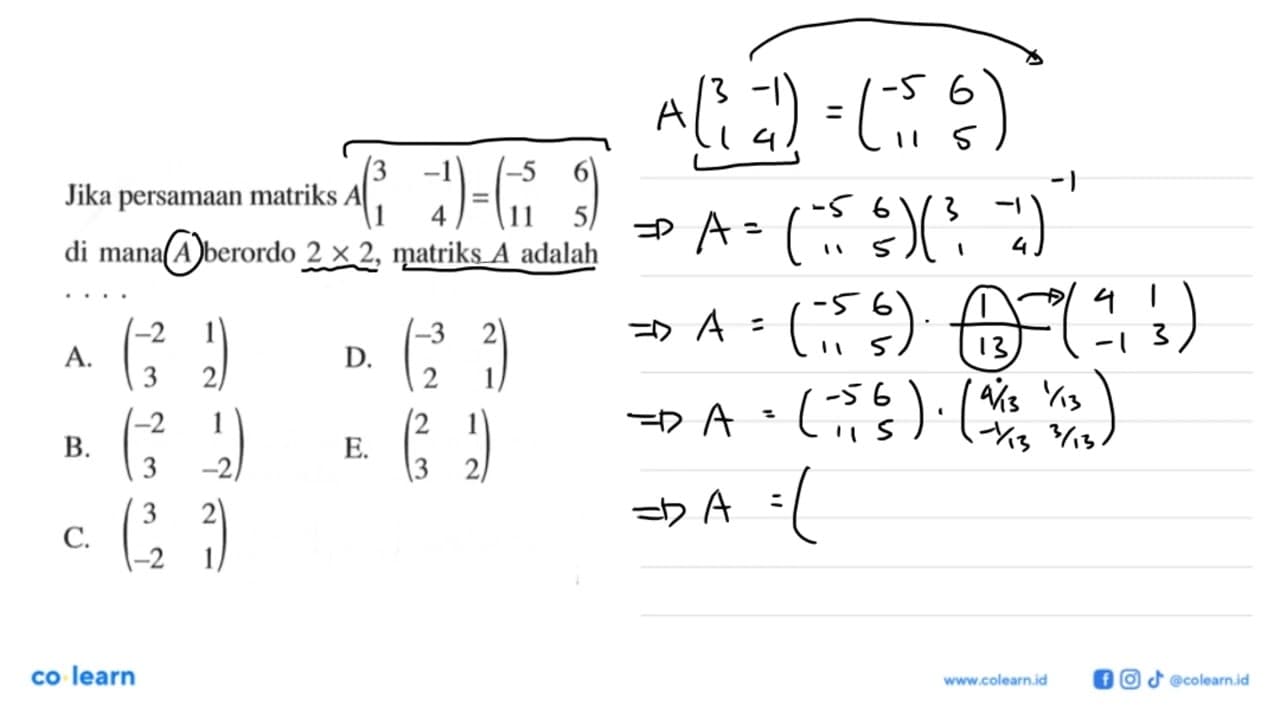 Jika persamaan matriks A(3 -1; 1 4) = (-5 6; 11 5)
di mana A berordo 2 × 2, matriks A adalah
. . . .
A. (-2 1; 3 2)
B. (-2 1; 3 -2)
C. (3 2; -2 1)
D. (-3 2; 2 1)
E. (2 1; 3 2)
A(3 -1; 1 4) = (-5 6; 11 5)
⇒ A = (-5 6; 11 5)(3 -1; 1 4)^-1
⇒ A = (-5 6; 11 5) · 1/13 → (4 1; -1 3)
⇒ A = (-5 6; 11 5) · (4/13 1/13; -1/13 3/13)
⇒ A = (
co learn
www.colearn.id
@colearn.id